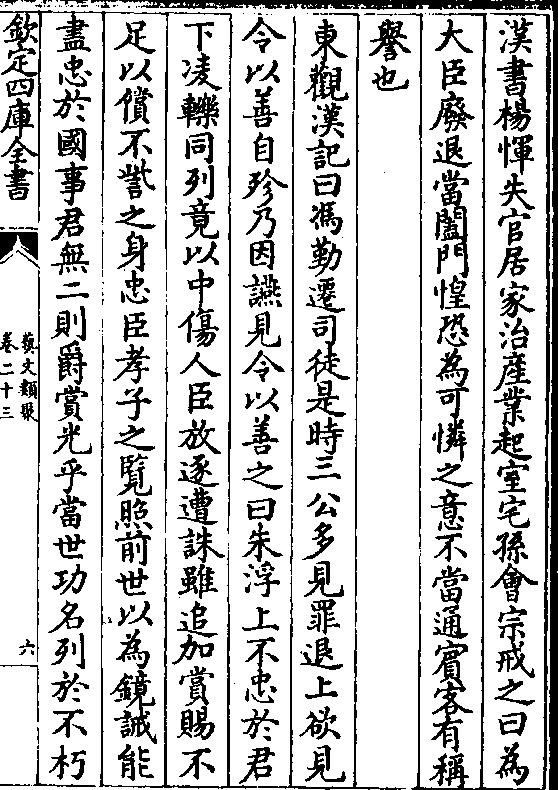 漢書楊惲失官居家治産業起室宅孫會宗戒之曰為
大臣廢退當闔門惶恐為可憐之意不當通賓客有稱
譽也
東觀漢記曰馮勤遷司徒是時三公多見罪退上欲見
令以善自珍乃因讌見令以善之曰朱浮上不忠於君
下凌轢同列竟以中傷人臣放逐遭誅雖追加賞賜不
足以償不訾之身忠臣孝子之覧照前世以為鏡誡能
盡忠於國事君無二則爵賞光乎當世功名列於不朽
欽定四庫全書
藝文類聚
卷二十三
六